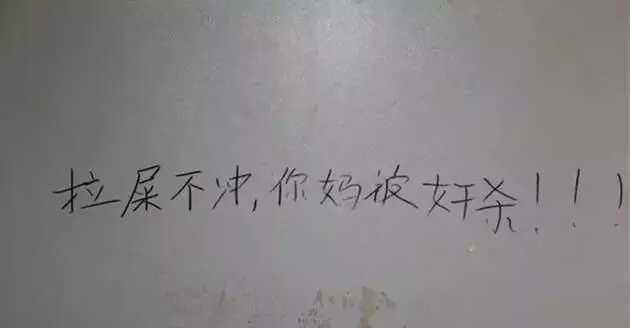 拉屎不冲,你妈被奸杀!!!